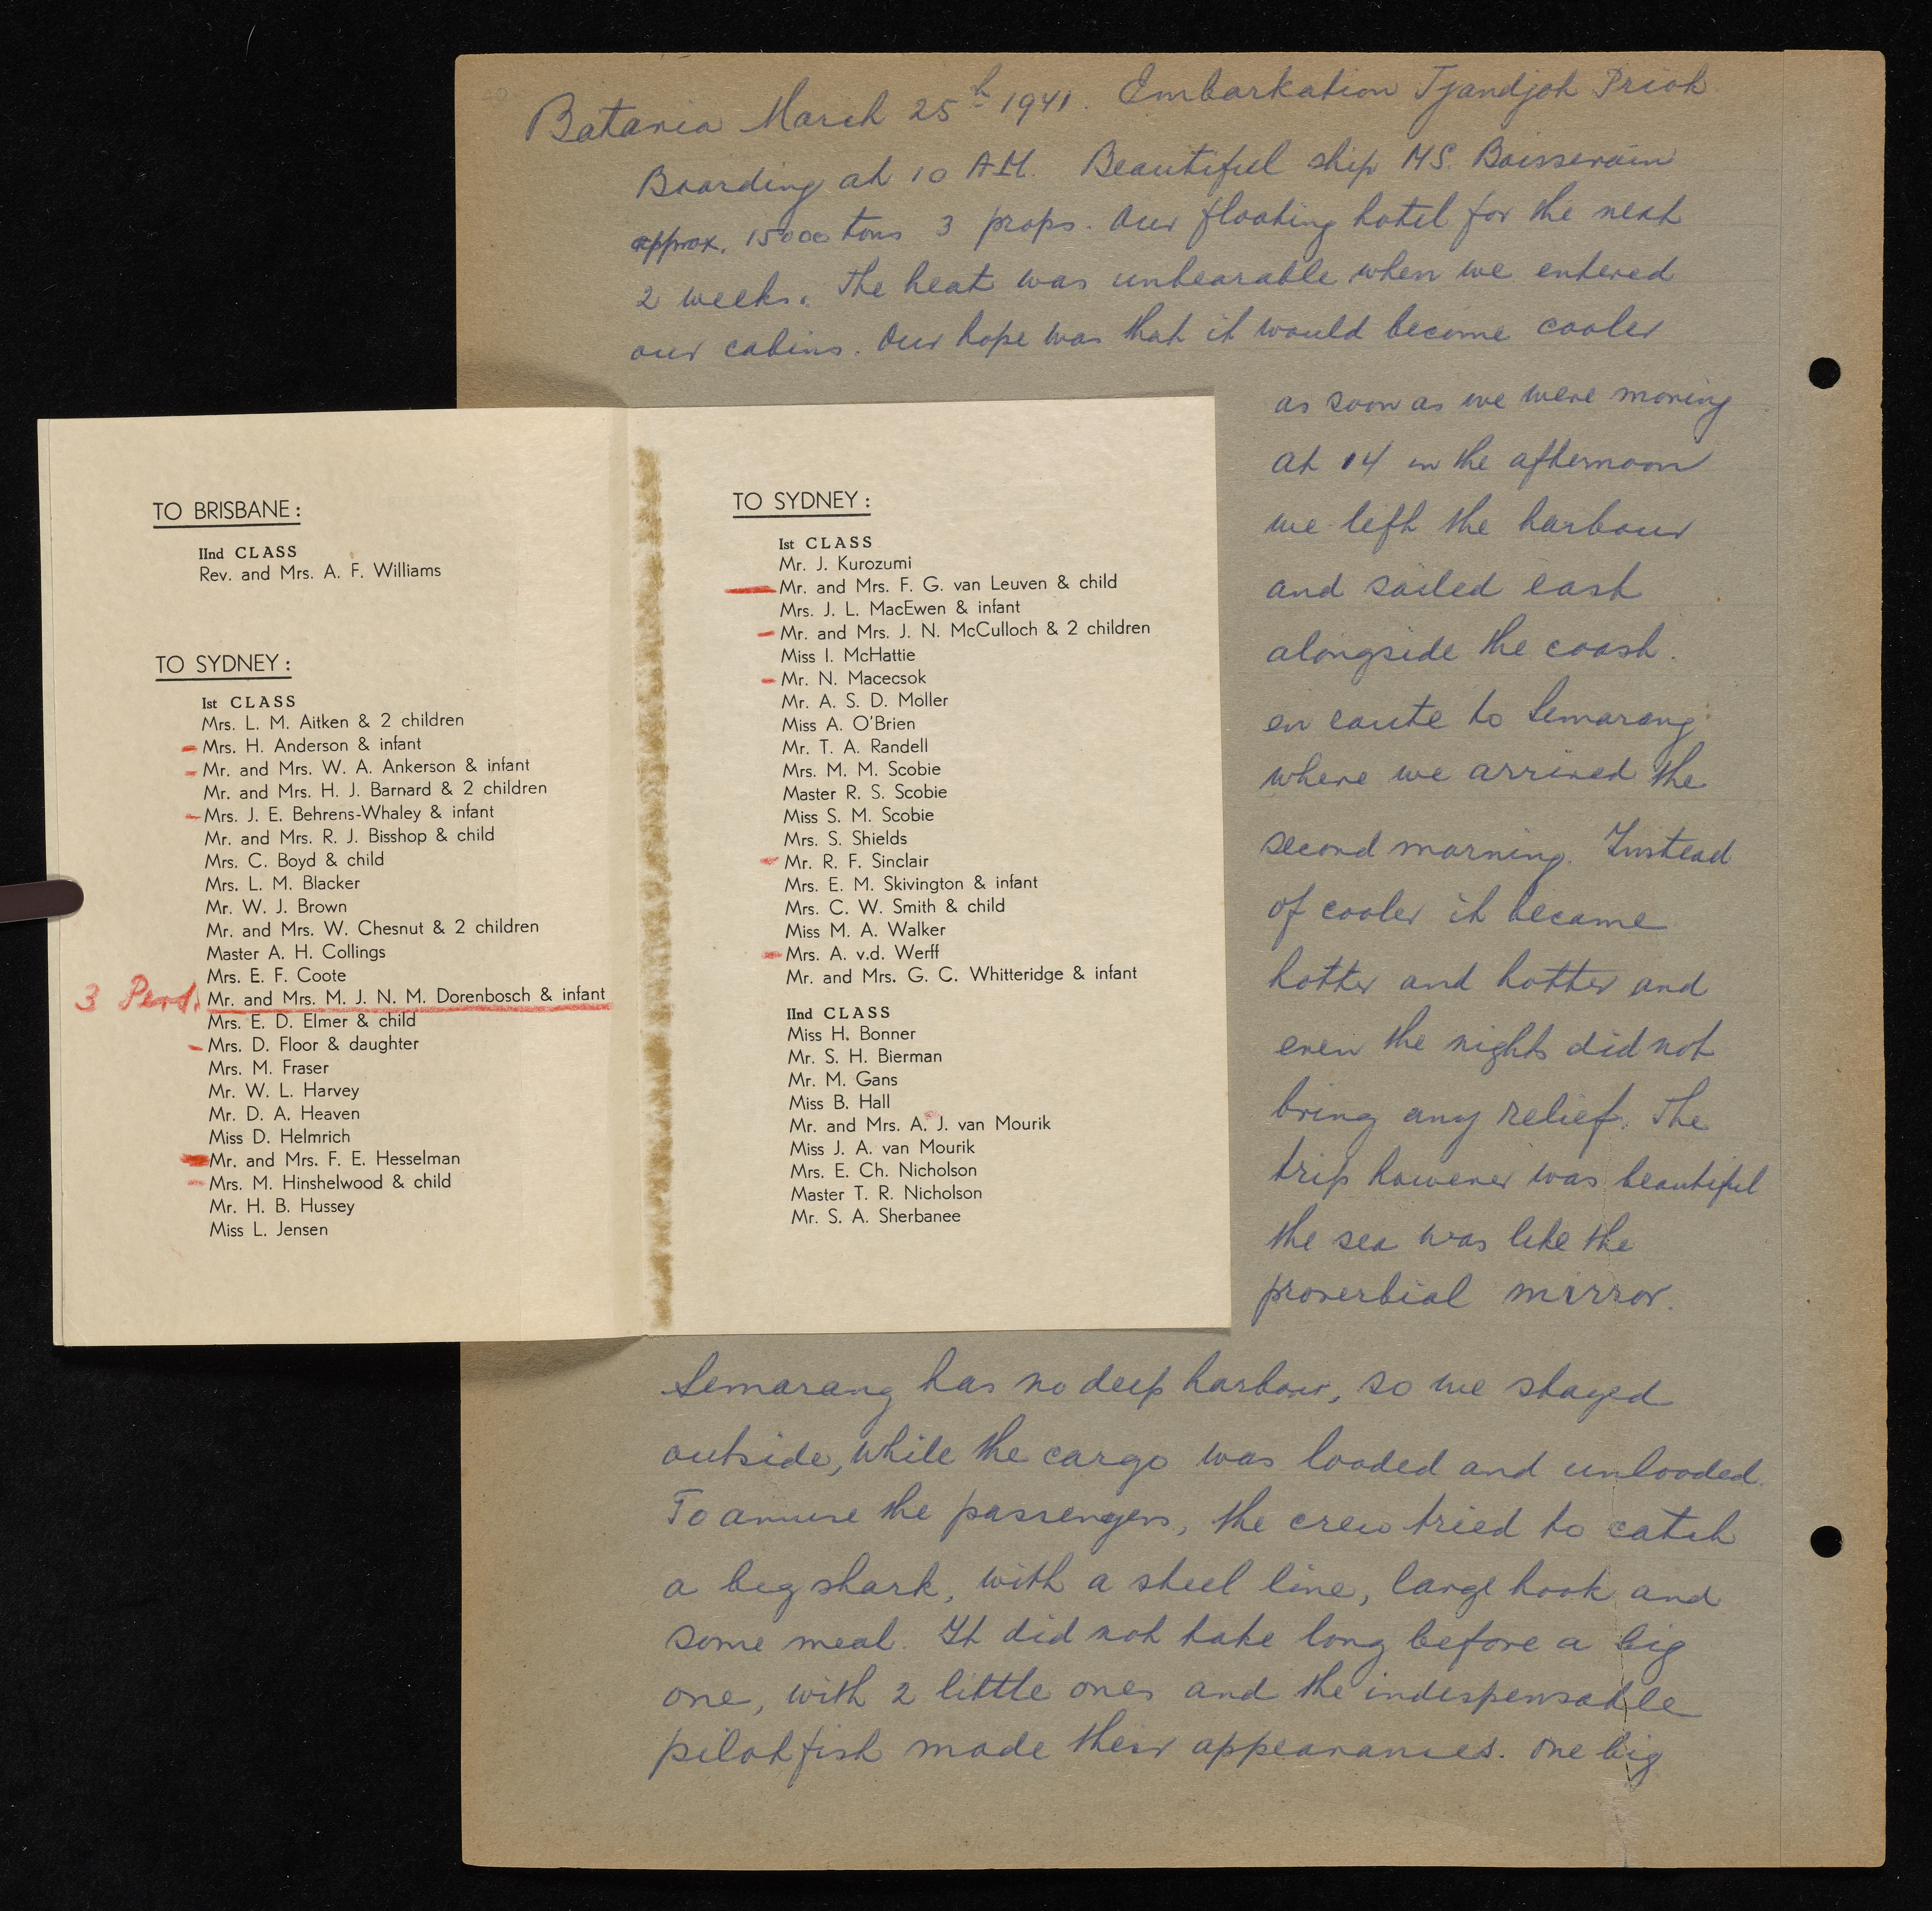 Batavia March 25th 1941. Embarkation Tjandjok Priok
Boarding at 10 AM. Beautiful ship MS. Boissevain
approx. 15000 tons 3 props. Our floating hotel for the next
2 weeks. The heat was unbearable when we entered
our cabins. Our hope was that it would become cooler
as soon as we were moving
at 14 in the afternoon
we left the harbour
and sailed east
alongside the coast.
en route to Semarang
where we arrived the
second morning. Instead
of cooler it became
hotter and hotter and
even the nights did not
bring any relief. The
trip however was beautiful
the sea was like the
proverbial mirror.
Semarang has no deep harbour, so we stayed
outside, while the cargo was loaded and unloaded.
To amuse the passengers, the crew tried to catch
a big shark, with a steel line, large hook and
some meat. It did not take long before a big
one, with 2 little ones and the indespensable
pilotfish made their appearances. One big
TO BRISBANE:
IInd CLASS
Rev. and Mrs. A. F. Williams
TO SYDNEY:
Ist CLASS
Mrs. L. M. Aitken & 2 children
Mrs. H. Anderson & infant
Mr. and Mrs. W. A. Ankerson & infant
Mr. and Mrs. H. J. Barnard & 2 children
Mrs. J. E. Behrens-Whaley & infant
Mr. and Mrs. R. J. Bisshop & child
Mrs. C. Boyd & child
Mrs. L. M. Blacker
Mr. W. J. Brown
Mr. and Mrs. W. Chesnut & 2 children
Master A. H. Collings
Mrs. E. F. Coote
3 Pers. Mr. and Mrs. M. J. N. M. Dorenbosch & infant
Mrs. E. D. Elmer & child
Mrs. D. Floor & daughter
Mrs. M. Fraser
Mr. W. L. Harvey
Mr. D. A. Heaven
Miss D. Helmrich
Mr. and Mrs. F. E. Hesselman
Mrs. M. Hinshelwood & child
Mr. H. B. Hussey
Miss L. Jensen
TO SYDNEY:
Ist CLASS
Mr. J. Kurozumi
Mr. and Mrs. F. G. van Leuven & child
Mrs. J. L. MacEwen & infant
Mr. and Mrs. J. N. McCulloch & 2 children
Miss I. McHattie
Mr. N. Macecsok
Mr. A. S. D. Moller
Miss A. O'Brien
Mr. T. A. Randell
Mrs. M. M. Scobie
Master R. S. Scobie
Miss S. M. Scobie
Mrs. S. Shields
Mr. R. F. Sinclair
Mrs. E. M. Skivington & infant
Mrs. C. W. Smith & child
Miss M. A. Walker
Mrs. A. v.d. Werff
Mr. and Mrs. G. C. Whitteridge & infant
IInd CLASS
Miss H. Bonner
Mr. S. H. Bierman
Mr. M. Gans
Miss B. Hall
Mr. and Mrs. A. J. van Mourik
Miss J. A. van Mourik
Mrs. E. Ch. Nicholson
Master T. R. Nicholson
Mr. S. A. Sherbanee